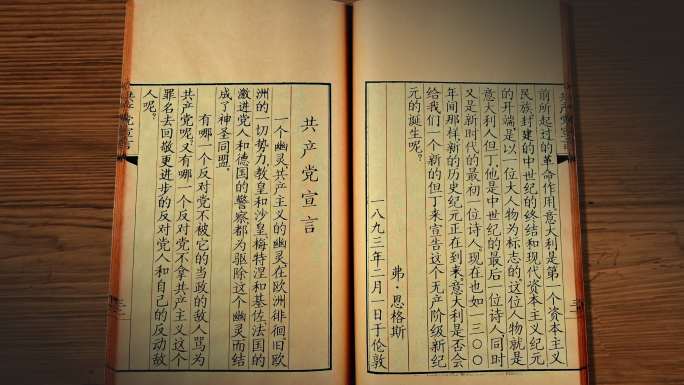 共产党宣言
前所起过的革命作用意大利是第一个资本主义
民族封建的中世纪的终结和现代资本主义纪元
的开端是以一位大人物为标志的这位人物就是
意大利人但丁他是中世纪的最后一位诗人同时
又是新时代的最初一位诗人现在也如一三〇〇
年间那样新的历史纪元正在到来意大利是否会
给我们一个新的但丁来宣告这个无产阶级新纪
元的诞生呢。
弗·恩格斯
一八九三年二月一日于伦敦
共产党宣言
一个幽灵共产主义的幽灵在欧洲徘徊旧欧
洲的一切势力教皇和沙皇梅特涅和基佐法国的
激进党人和德国的警察都为驱除这个幽灵而结
成了神圣同盟。
有哪一个反对党不被它的当政的敌人骂为
共产党呢又有哪一个反对党不拿共产主义这个
罪名去回敬更进步的反对党人和自己的反动敌
人呢。
共产党宣言